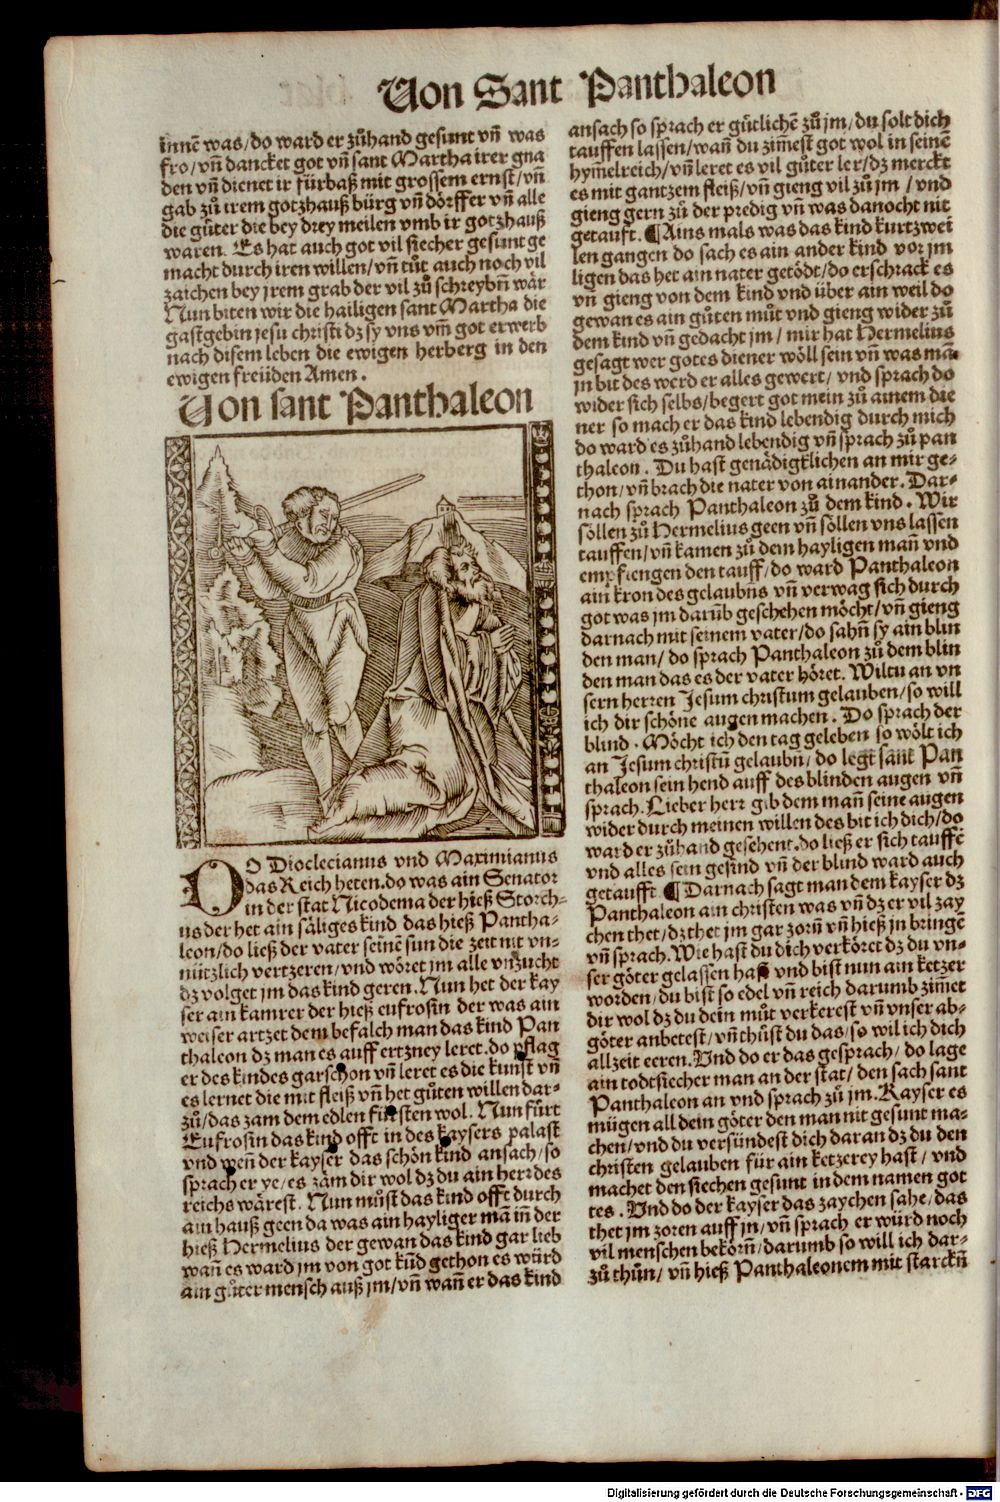 Von Sant Panthaleon
innē was/do ward er zůhand gesunt vñ was
fro/vñ dancket got vñ sant Martha irer gna
den vñ dienet ir fürbaß mit grossem ernst/vñ
gab zů irem gotzhauß bürg vñ dörffer vñ alle
die güter die bey drey meilen vmb ir gotzhauß
waren. Es hat auch got vil siecher gesunt ge
macht durch iren willen/vñ tůt auch noch vil
zaichen bey jrem grab der vil zů schreybñ wär
Nun biten wir die hailigen sant Martha die
gastgebin jesu christi dz sy vns vm̄ got erwerb
nach disem leben die ewigen herberg in den
ewigen freüden Amen.
Von sant Panthaleon
DO Dioclecianus vnd Maximianus
das Reich heten.do was ain Senator
in der stat Nicodema der hieß Storch-
us der het ain säliges kind das hieß Pantha-
leon/do ließ der vater seinē sun die zeit nit vn-
nützlich vertzeren/vnd wöret im alle vnzucht
dz volget jm das kind geren. Nun het der kay
ser ain kamrer der hieß eufrosin der was ain
weiser artzet dem befalch man das kind Pan
thaleon dz man es auff ertzney leret.do pflag
er des kindes gar schon vñ leret es die kunst vñ
es lernet die mit fleiß vñ het gůten willen dar-
zů/das zam dem edlen fürsten wol. Nun fürt
Eufrosin das kind offt in des kaysers palast
vnd weñ der kayser das schön kind ansach/so
sprach er ye/es zäm dir wol dz du ain herr des
reichs wärest. Nun můst das kind offt durch
ain hauß geen da was ain hayliger mā iñ der
hieß Hermelius der gewan das kind gar lieb
wañ es ward jm von got kūd gethon es würd
ain gůter mensch auß jm/vñ wañ er das kind
ansach so sprach er gütlichē zů jm/du solt dich
tauffen lassen/wañ du zimest got wol in seinē
hym̄elreich/vñ leret es vil gůter ler/dz merckt
es mit gantzem fleiß/vñ gieng vil zů jm/vnd
gieng gern zů der predig vñ was danocht nit
getauft. ¶Ains mals was das kind kurtzwei
len gangen do sach es ain ander kind vor jm
ligen das het ain nater getödt/do erschrack es
vñ gieng von dem kind vnd über ain weil do
gewan es ain gůten můt vnd gieng wider zů
dem kind vñ gedacht jm/mir hat Hermelius
gesagt wer gotes diener wöll sein vñ was mā
jn bit des werd er alles gewert/vnd sprach do
wider sich selbs/begert got mein zů ainem die
ner so mach er das kind lebendig durch mich
do ward es zůhand lebendig vñ sprach zů pan
thaleon. Du hast genädigklichen an mir ge-
thon/vñ brach die nater von ainander. Dar-
nach sprach Panthaleon zů dem kind. Wir
söllen zů Hermelius geen vñ söllen vns lassen
tauffen/vñ kamen zů dem hayligen mañ vnd
empfiengen den tauff/do ward Panthaleon
ain kron des gelaubns vñ verwag sich durch
got was jm darūb geschehen möcht/vñ gieng
darnach mit seinem vater/do sahñ sy ain blin
den man/do sprach Panthaleon zů dem blin
den man das es der vater höret. Wiltu an vn
sern herren Jesum christum gelauben/so will
ich dir schöne augen machen. Do sprach der
blind. Möcht ich den tag geleben so wölt ich
an Jesum christū gelaubñ/do legt sant Pan
thaleon sein hend auff des blinden augen vñ
sprach. Lieber herr gib dem mañ seine augen
wider durch meinen willen des bit ich dich/do
ward er zůhand gesehent.do ließ er sich tauffē
vnd alles sein gesind vñ der blind ward auch
getaufft ¶Darnach sagt man dem kayser dz
Panthaleon ain christen was vñ dz er vil zay
chen thet/dz thet jm gar zorñ vñ hieß jn bringē
vñ sprach. Wie hast du dich verköret dz du vn-
ser göter gelassen hast vnd bist nun ain ketzer
worden/du bist so edel vñ reich darumb zim̄et
dir wol dz du dein můt verkerest vñ vnser ab-
göter anbetest/vñ thůst du das/so wil ich dich
allzeit eeren. Vnd do er das gesprach/do lage
ain todtsiecher man an der stat/den sach sant
Panthaleon an vnd sprach zů jm. Kayser es
mügen all dein göter den man nit gesunt ma-
chen/vnd du versündest dich daran dz du den
christen gelauben für ain ketzerey hast/vnd
machet den siechen gesunt in dem namen got
tes. Vnd do der kayser das zaychen sahe/das
thet jm zoren auff jn/vñ sprach er würd noch
vil menschen bekörñ/darumb so will ich dar-
zů thůn/vñ hieß Panthaleonem mit starckñ
Digitalisierung gefördert durch die Deutsche Forschungsgemeinschaft - DFG